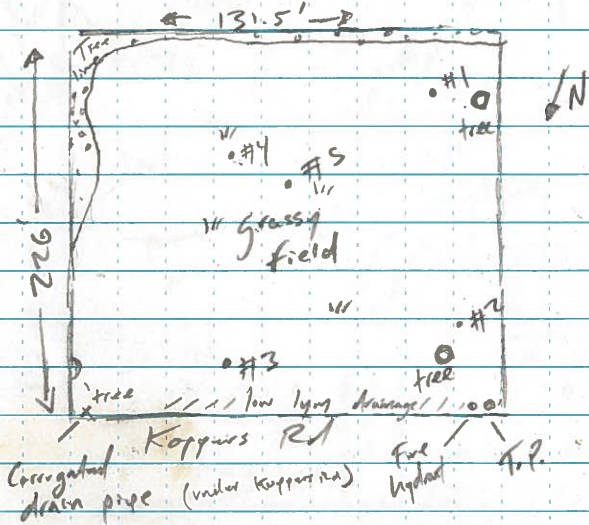 131.5'
Tree
line
#1
N
tree
#4
#5
226'
Grassy
field
#2
#3
tree
tree
low lying drainage
Koppers Rd
Corrugated
drain pipe
(under Koppers Rd)
Fire
hydrant
T.P.